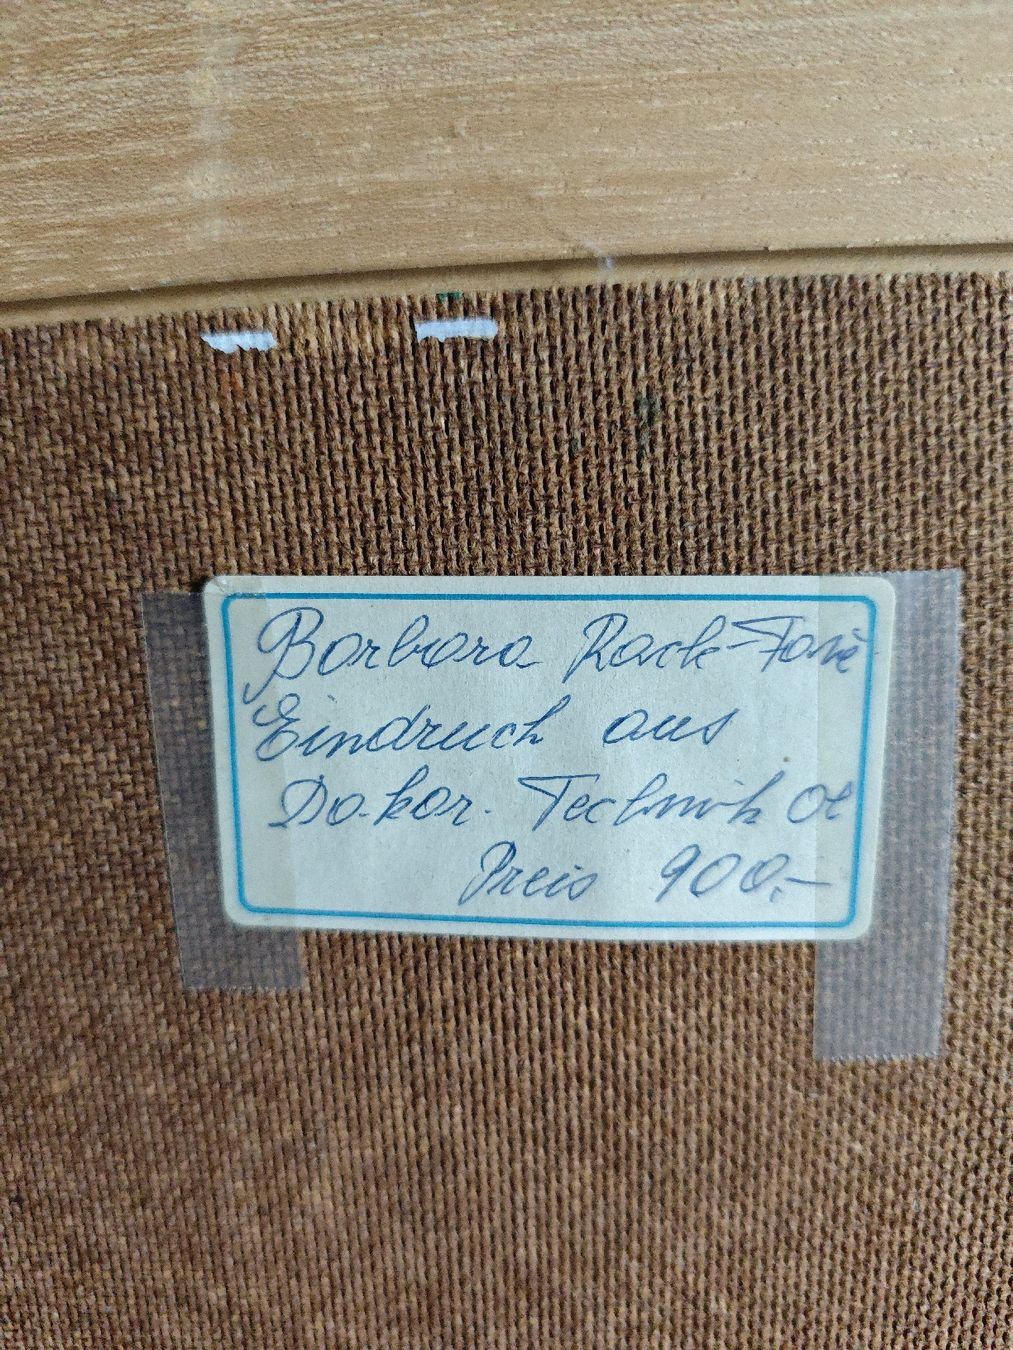 Barbara Rack-
Eindruck aus
Dakar. Technik Öl
Preis 900,-